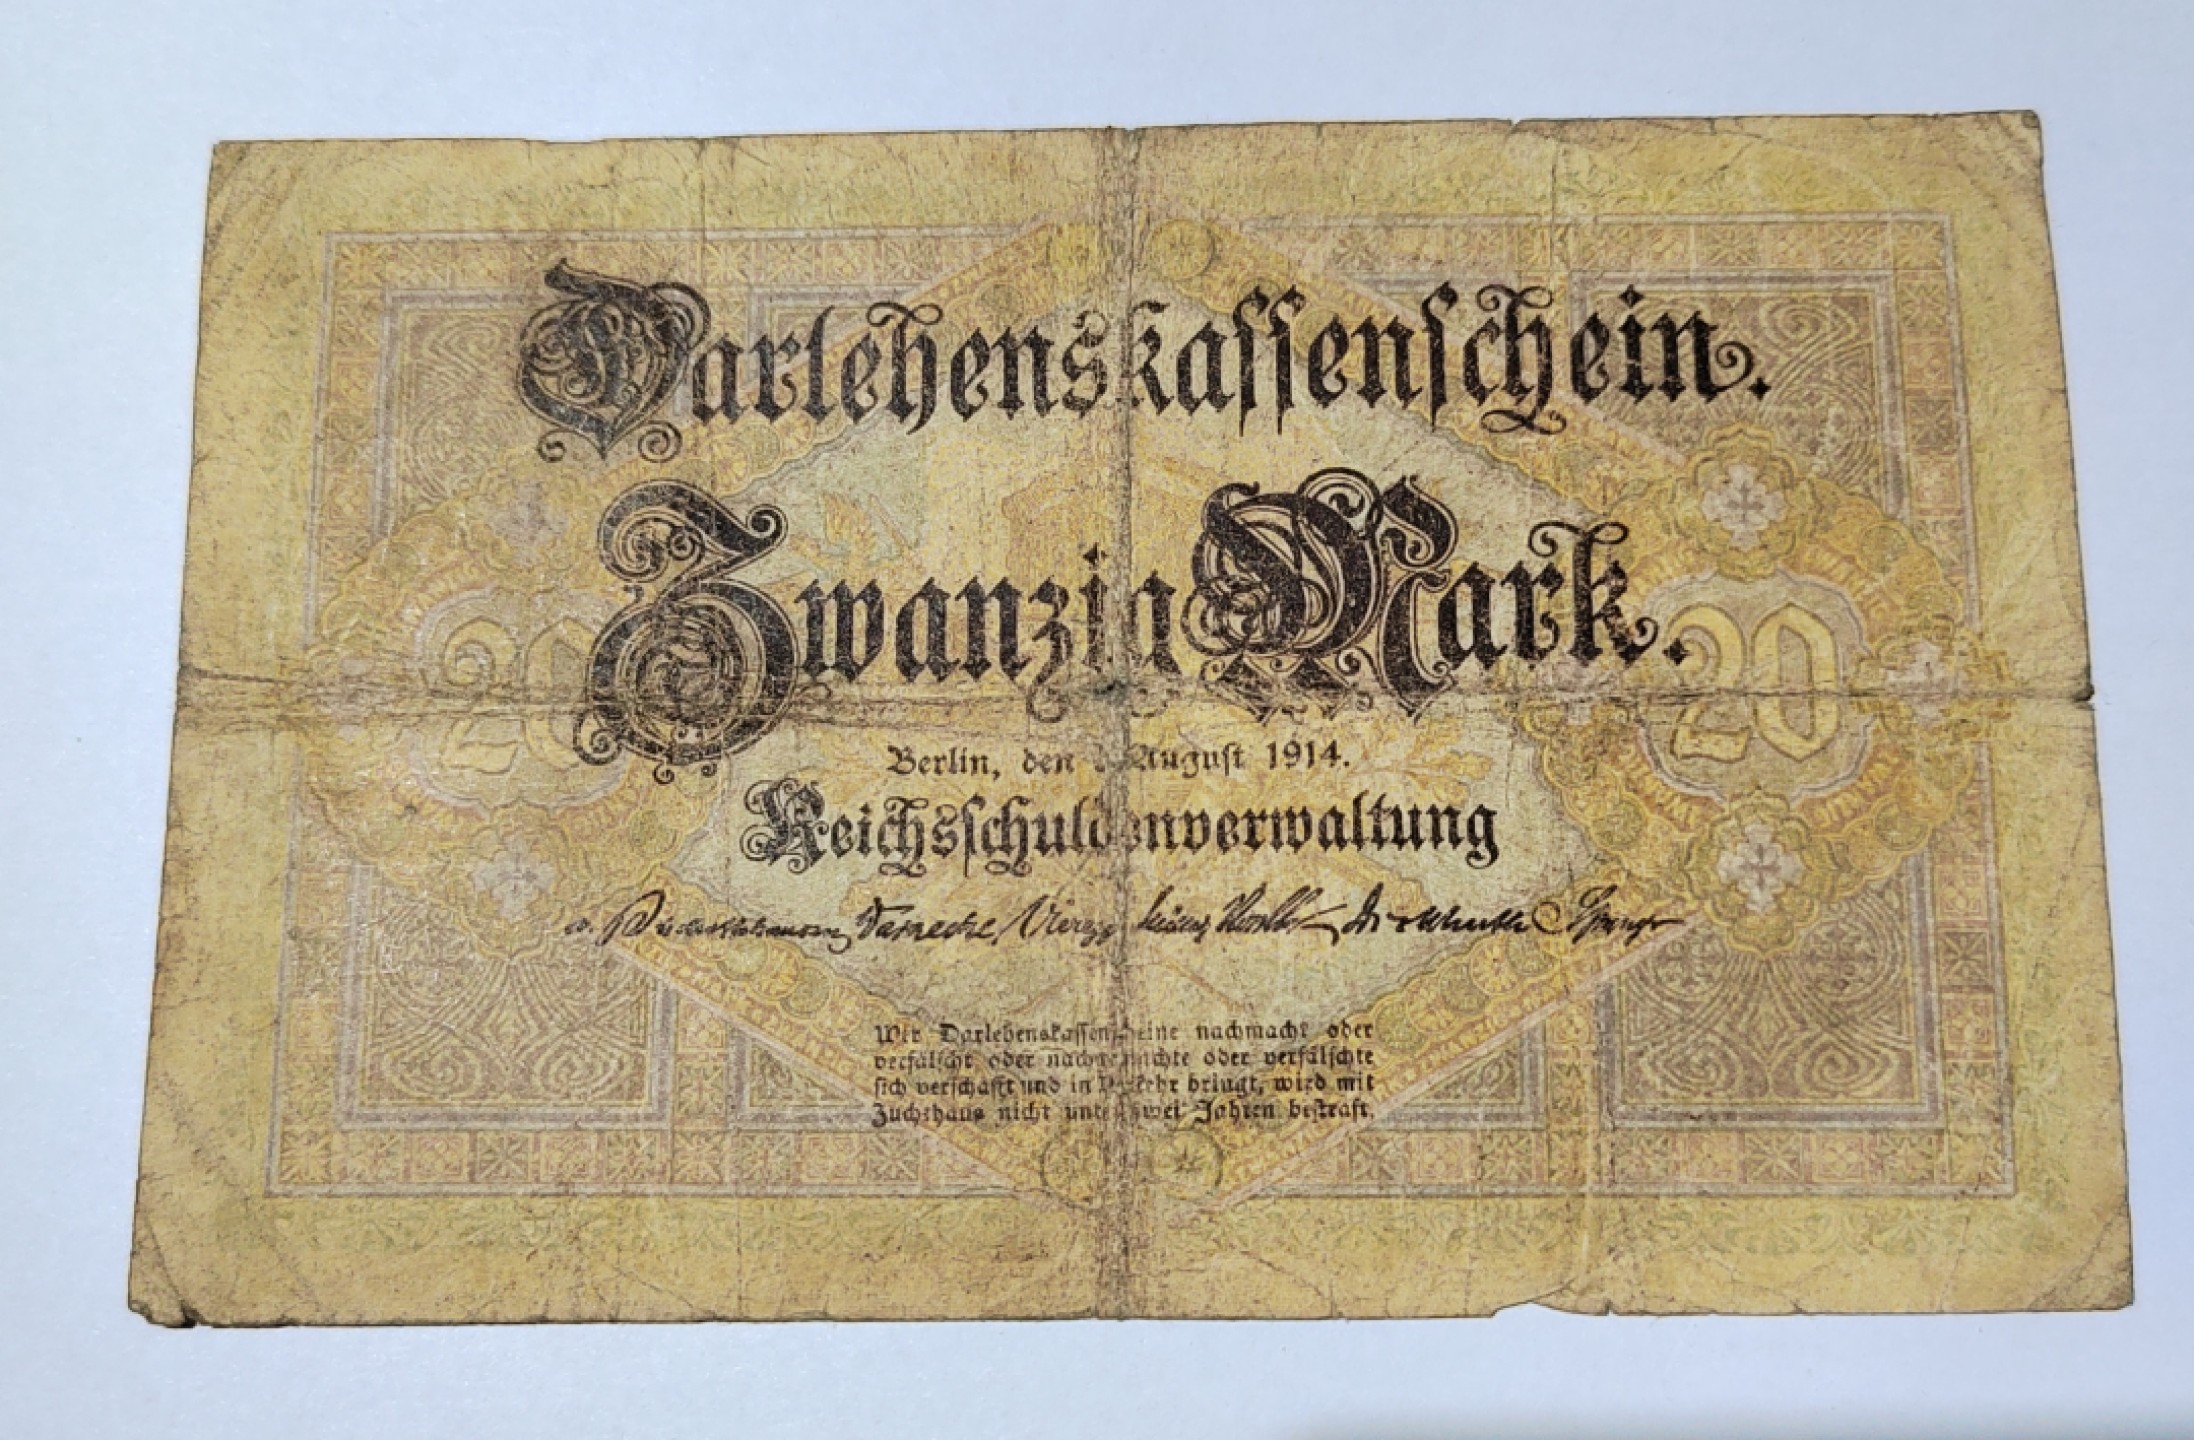 Darlehenskassenschein.
Zwanzig Mark.
20
20
Berlin, den August 1914.
Reichsschuldenverwaltung
Warnecke Vieregge Müller
Wer Darlehenskassenscheine nachmacht oder
verfälscht oder nachgemachte oder verfälschte
sich verschafft und in Verkehr bringt, wird mit
Zuchthaus nicht unter zwei Jahren bestraft.